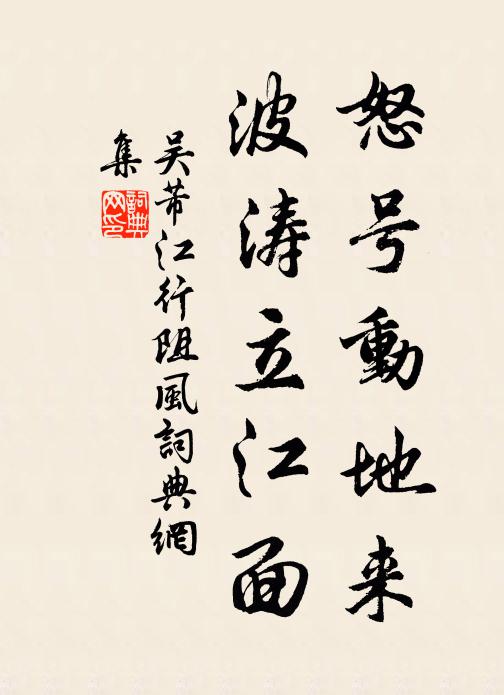 怒号動地来
波涛立江面
吴芾江行阻風詞典網
集
詞典
网印